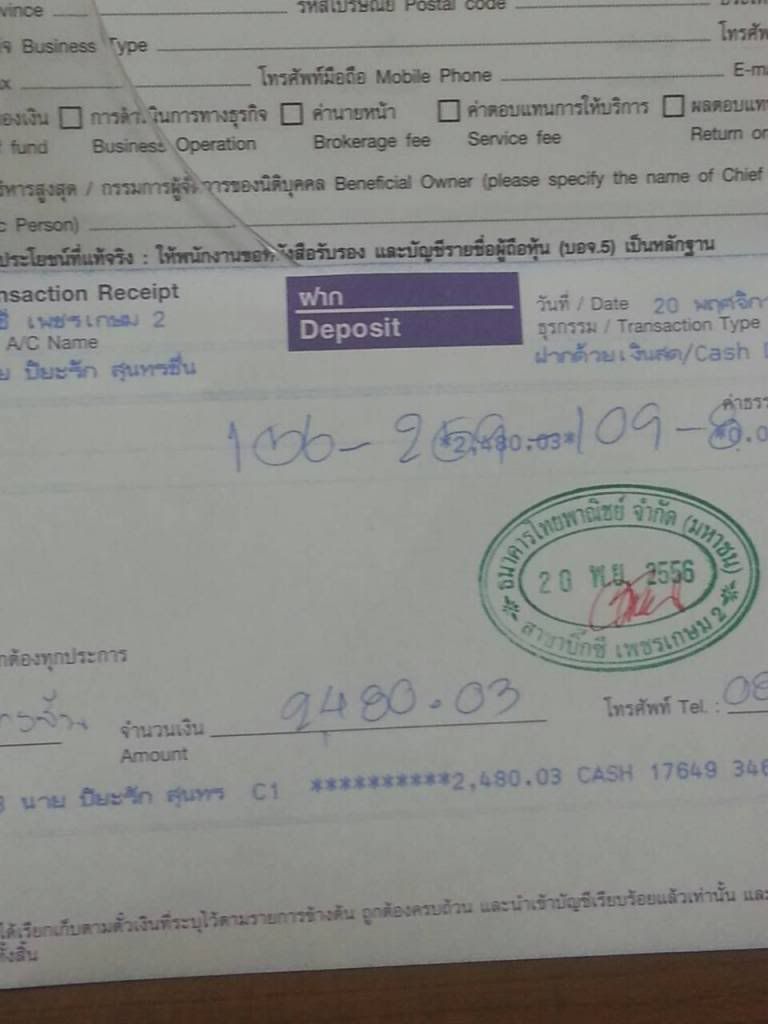 vince รหัสไปรษณีย์ Postal code
Business Type โทรศัพ
โทรศัพท์มือถือ Mobile Phone E-ma
องเงิน การดำเนินการทางธุรกิจ ค่านายหน้า ค่าตอบแทนการให้บริการ ผลตอบแท
fund Business Operation Brokerage fee Service fee Return or
ริหารสูงสุด / กรรมการผู้จัดการของนิติบุคคล Beneficial Owner (please specify the name of Chief
c Person)
ประโยชน์ที่แท้จริง : ให้พนักงานขอหนังสือรับรอง และบัญชีรายชื่อผู้ถือหุ้น (บอจ.5) เป็นหลักฐาน
nsaction Receipt
ซี เพชรเกษม 2
A/C Name
ย ปิยะรัก สุนทรชื่น
ฝาก
Deposit
วันที่ / Date 20 พฤศจิกา
ธุรกรรม / Transaction Type
ฝากด้วยเงินสด/Cash
ค่าธรร
*2,480.03*
109-
ธนาคารไทยพาณิชย์ จำกัด (มหาชน)
20 พ.ย. 2556
สาขาบิ๊กซี เพชรเกษม 2
กต้องทุกประการ
จำนวนเงิน 2480.03 โทรศัพท์ Tel. : 08
Amount
นาย ปิยะรัก สุนทร C1 **********2,480.03 CASH 17649 346
ได้เรียกเก็บตามตั๋วเงินที่ระบุไว้ตามรายการข้างต้น ถูกต้องครบถ้วน และนำเข้าบัญชีเรียบร้อยแล้วเท่านั้น และ
ทั้งสิ้น